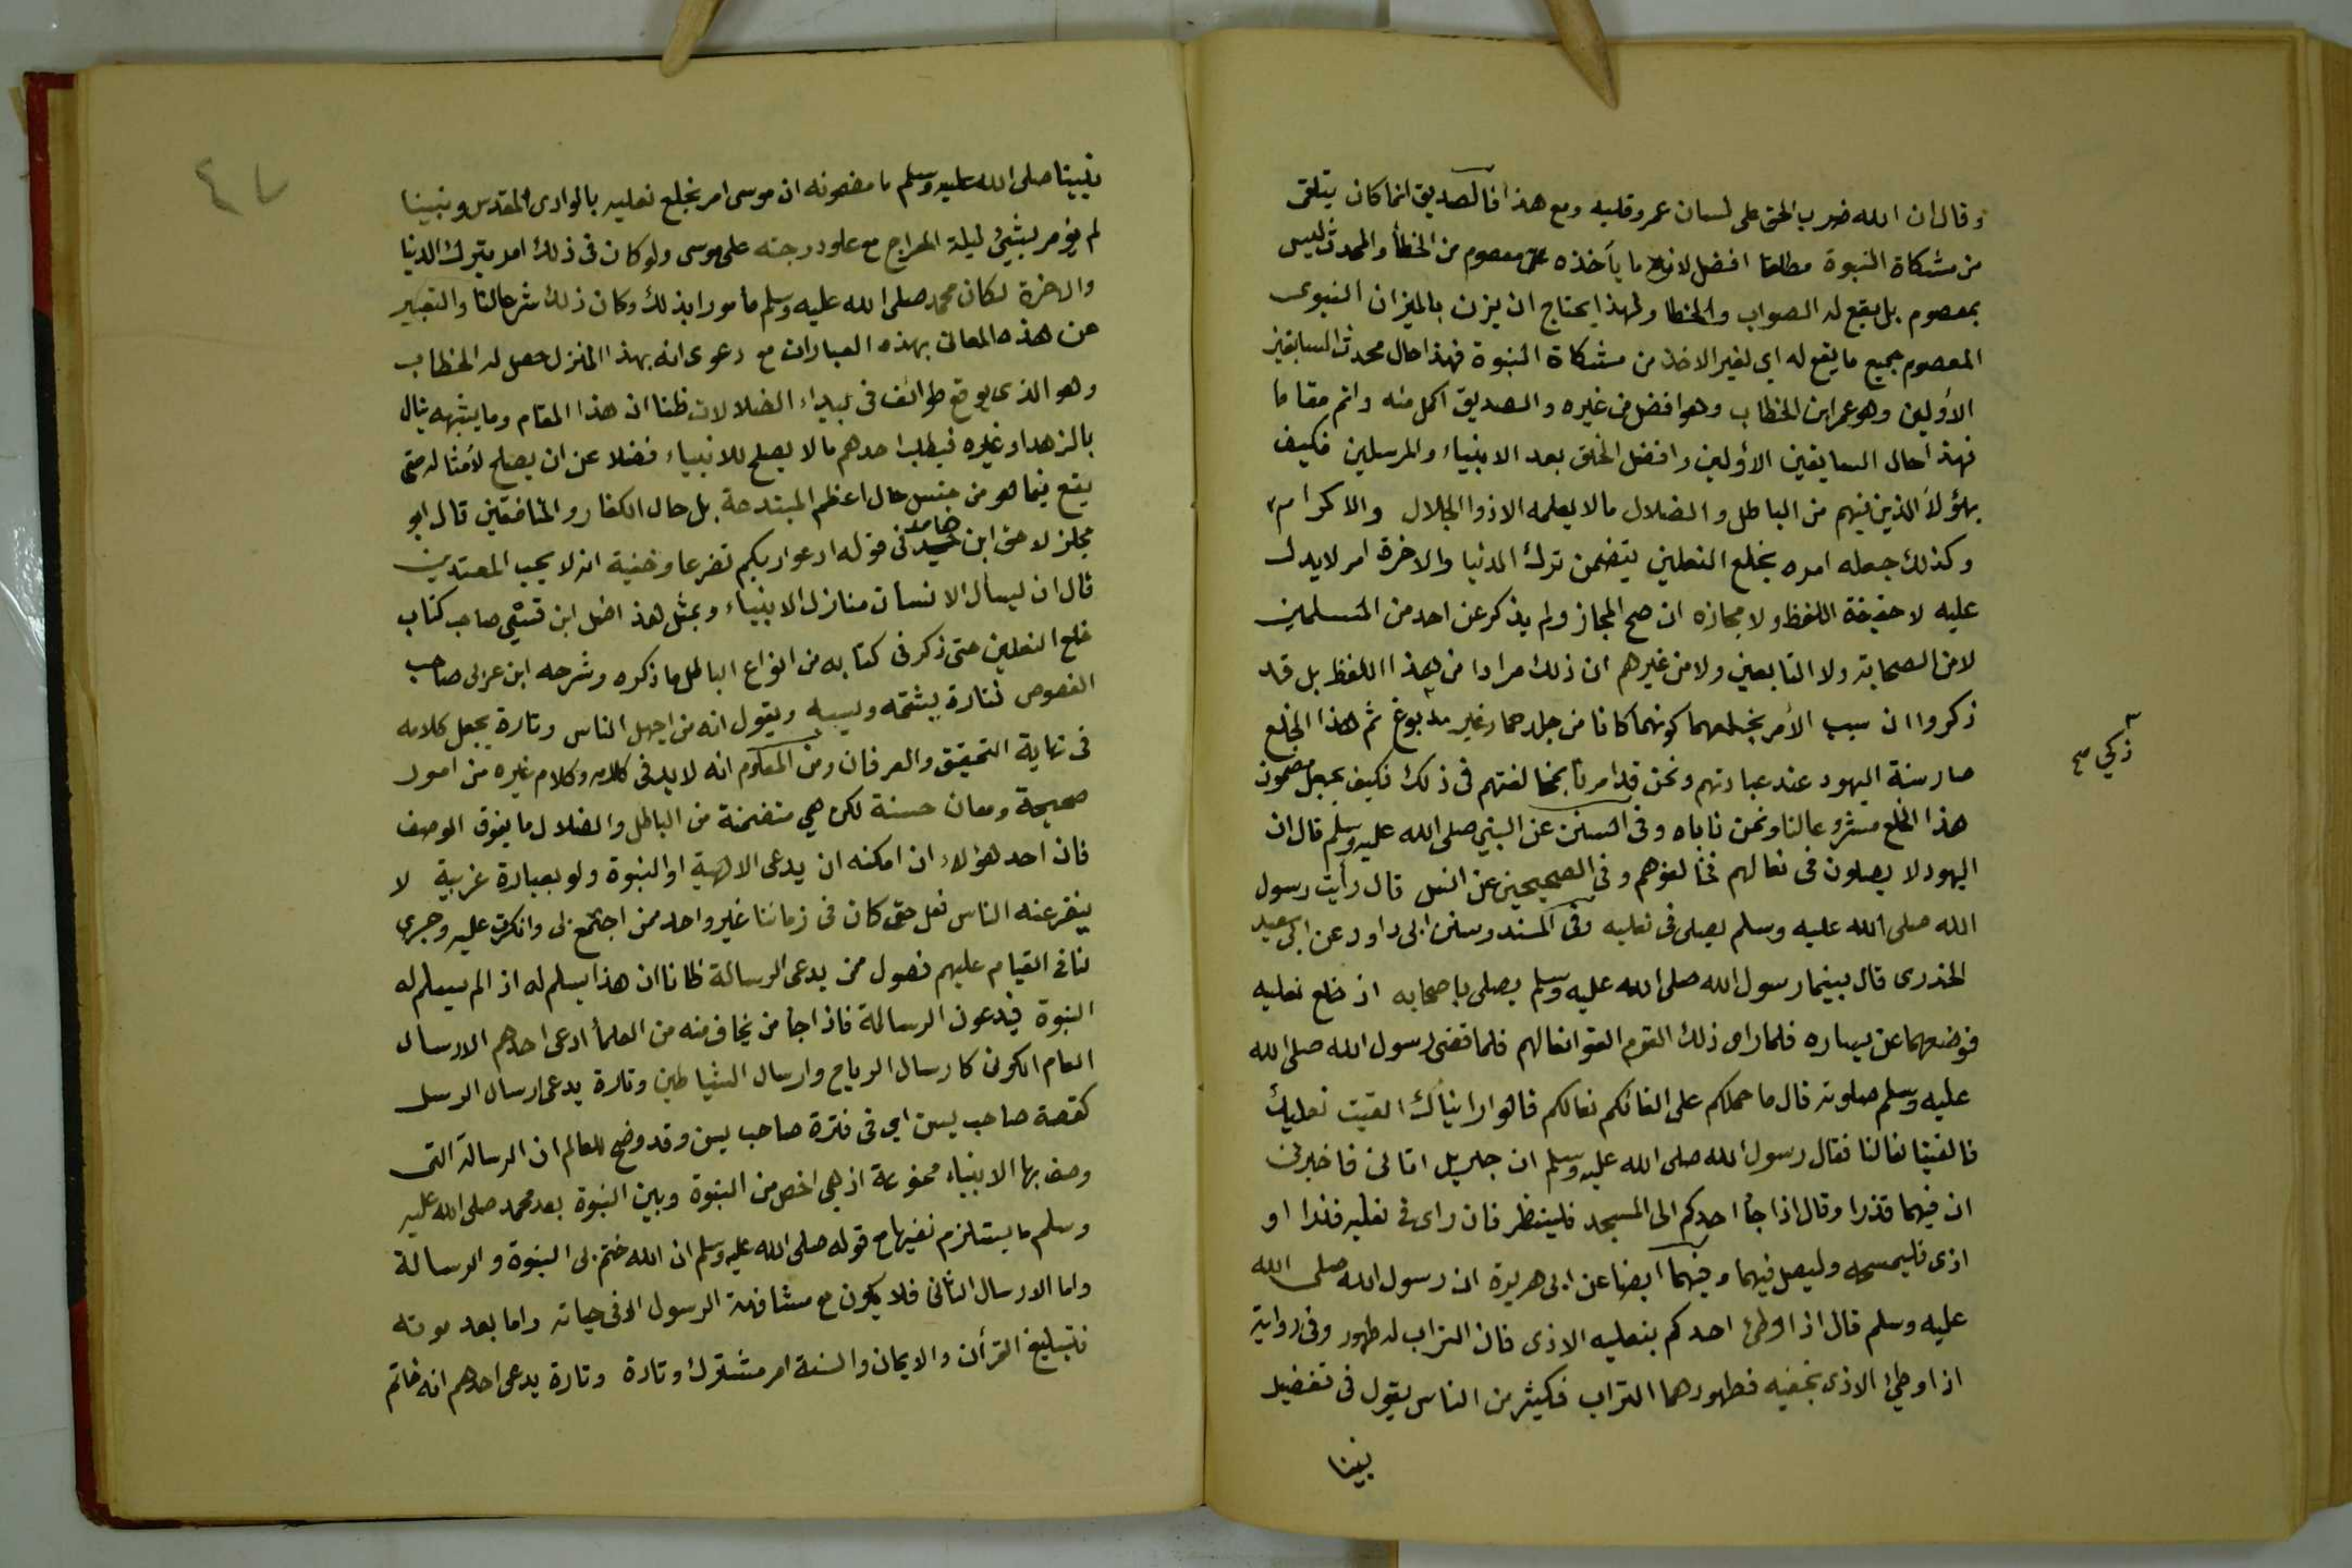 وقال ان الله ضرب الحق على لسان عمر وقلبه ومع هذا فالصديق انما كان يتلقى
من مشكاة النبوة مطلقا افضل لان ما يأخذه معصوم من الخطأ والمحدث ليس
بمعصوم بل يقع له الصواب والخطا ولهذا يحتاج ان يزن بالميزان النبوى
المعصوم جميع ما يقع له اي لغير الاخذ من مشكاة النبوة فهذا حال محدث السابقين
الأولين وهو عمر ابن الخطاب وهو افضل من غيره والصديق اكمل منه واتم مقاما
فهذا حال السابقين الأولين وافضل الخلق بعد الانبياء والمرسلين فكيف
بهؤلاء الذين فيهم من الباطل والضلال مالا يعلمه الا ذوا الجلال والاكرام
وكذلك جعله امره بخلع النعلين يتضمن ترك الدنيا والاخرة امر لا يدل
عليه لا حقيقة اللفظ ولا مجازه ان صح المجاز ولم يذكر عن احد من المسلمين
لا من الصحابة ولا التابعين ولا من غيرهم ان ذلك مرادا من هذا اللفظ بل قد
ذكروا ان سبب الأمر بخلعهما كونهما كانا من جلد حمار غير مدبوغ ثم هذا الخلع
ذكي صح
صار سنة اليهود عند عبادتهم ونحن قد امرنا بمخالفتهم فى ذلك فكيف يجعل مضمون
هذا الخلع مشروعا لنا ونحن ناباه وفى السنن عن النبي صلى الله عليه وسلم قال ان
اليهود لا يصلون فى نعالهم فخالفوهم وفى الصحيحين عن انس قال رأيت رسول
الله صلى الله عليه وسلم يصلى فى نعليه وفى المسند وسنن ابى داود عن ابى سعيد
الخذرى قال بينما رسول الله صلى الله عليه وسلم يصلى باصحابه اذ خلع نعليه
فوضعهما عن يساره فلما راى ذلك القوم القوا نعالهم فلما قضى رسول الله صلى الله
عليه وسلم صلوته قال ما حملكم على القائكم نعالكم قالوا رايناك القيت نعليك
فالقينا نعالنا فقال رسول الله صلى الله عليه وسلم ان جبريل اتانى فاخبرنى
ان فيهما قذرا وقال اذا جأ احدكم الى المسجد فلينظر فان راى فى نعليه قذرا او
اذى فليمسحه وليصل فيهما وفيهما ايضا عن ابى هريرة ان رسول الله صلى الله
عليه وسلم قال اذا وطئ احدكم بنعليه الاذى فان التراب له طهور وفى رواية
اذا وطئ الاذى بخفيه فطهورهما التراب فكيثر من الناس يقول فى تفضيل
نبينا
٤٧
نبينا صلى الله عليه وسلم ما مضمونه ان موسى امر بخلع نعليه بالوادى المقدس ونبينا
لم يؤمر بشيئ ليلة المعراج مع علو درجته على موسى ولو كان فى ذلك امر بترك الدنيا
والاخرة لكان محمد صلى الله عليه وسلم مأمورا بذلك وكان ذلك شرعا لنا والتعبير
عن هذه المعانى بهذه العبارات مع دعوى انه بهذا المنزل حصل له الخطاب
وهو الذى يوقع طوائف فى بيداء الضلالات ظنا ان هذا المقام وما يشبهه ينال
بالزهد او غيره فيطلب احدهم مالا يصلح للانبياء فضلا عن ان يصلح لأمثاله حتى
يقع فيما هو من جنس حال اعظم المبتدعة بل حال الكفار والمنافقين قال ابو
مجلز لاحق ابن حميد فى قوله ادعوا ربكم تضرعا وخفية انه لا يحب المعتدين
قال ان ليسأل الانسان منازل الانبياء وبمثل هذا اضل ابن قسي صاحب كتاب
خلع النعلين حتى ذكر فى كتابه من انواع الباطل ما ذكره وشرحه ابن عربى صاحب
الفصوص فتارة يشتمه ويسبه ويقول انه من اجهل الناس وتارة يجعل كلامه
فى نهاية التحقيق والعرفان ومن المعلوم انه لابد فى كلامه وكلام غيره من امور
صحيحة ومعان حسنة لكن هي متضمنة من الباطل والضلال ما يفوق الوصف
فان احد هؤلاء ان امكنه ان يدعى الالهية او النبوة ولو بعبارة غريبة لا
ينفر عنه الناس فعل حتى كان فى زماننا غير واحد ممن اجتمع بى وانكرت عليه وجرى
لنا فى القيام عليهم فصول ممن يدعى الرسالة ظانا ان هذا يسلم له اذا لم يسلم له
النبوة فيدعون الرسالة فاذا جأ من يخاف منه من العلمأ ادعى احدهم الارسال
العام الكونى كارسال الرياح وارسال الشياطين وتارة يدعى ارسال الرسل
كقصة صاحب يسن اي فى فترة صاحب يسن وقد وضح للعالم ان الرسالة التى
وصف بها الانبياء ممنوعة اذ هي اخص من النبوة وبين النبوة بعد محمد صلى الله عليه
وسلم ما يستلزم نفيها مع قوله صلى الله عليه وسلم ان الله ختم بى النبوة والرسالة
واما الارسال الثانى فلا يكون مع مشافهة الرسول الا فى حياته واما بعد موته
فتبليغ القرأن والايمان والسنة امر مشترك وتارة وتارة يدعى احدهم انه خاتم